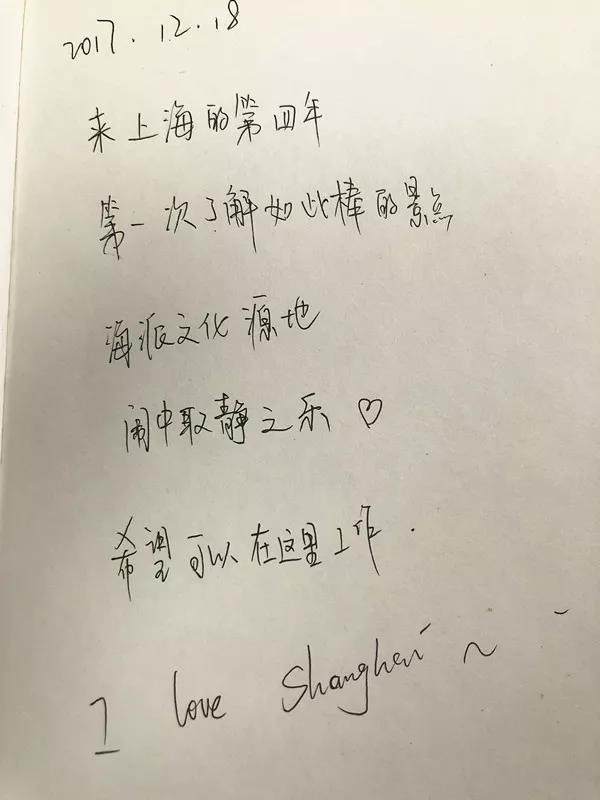 2017.12.18
来上海的第四年
第一次了解如此棒的景点
海派文化源地
闹中取静之乐♡
希望可以在这里工作.
I love Shanghai~